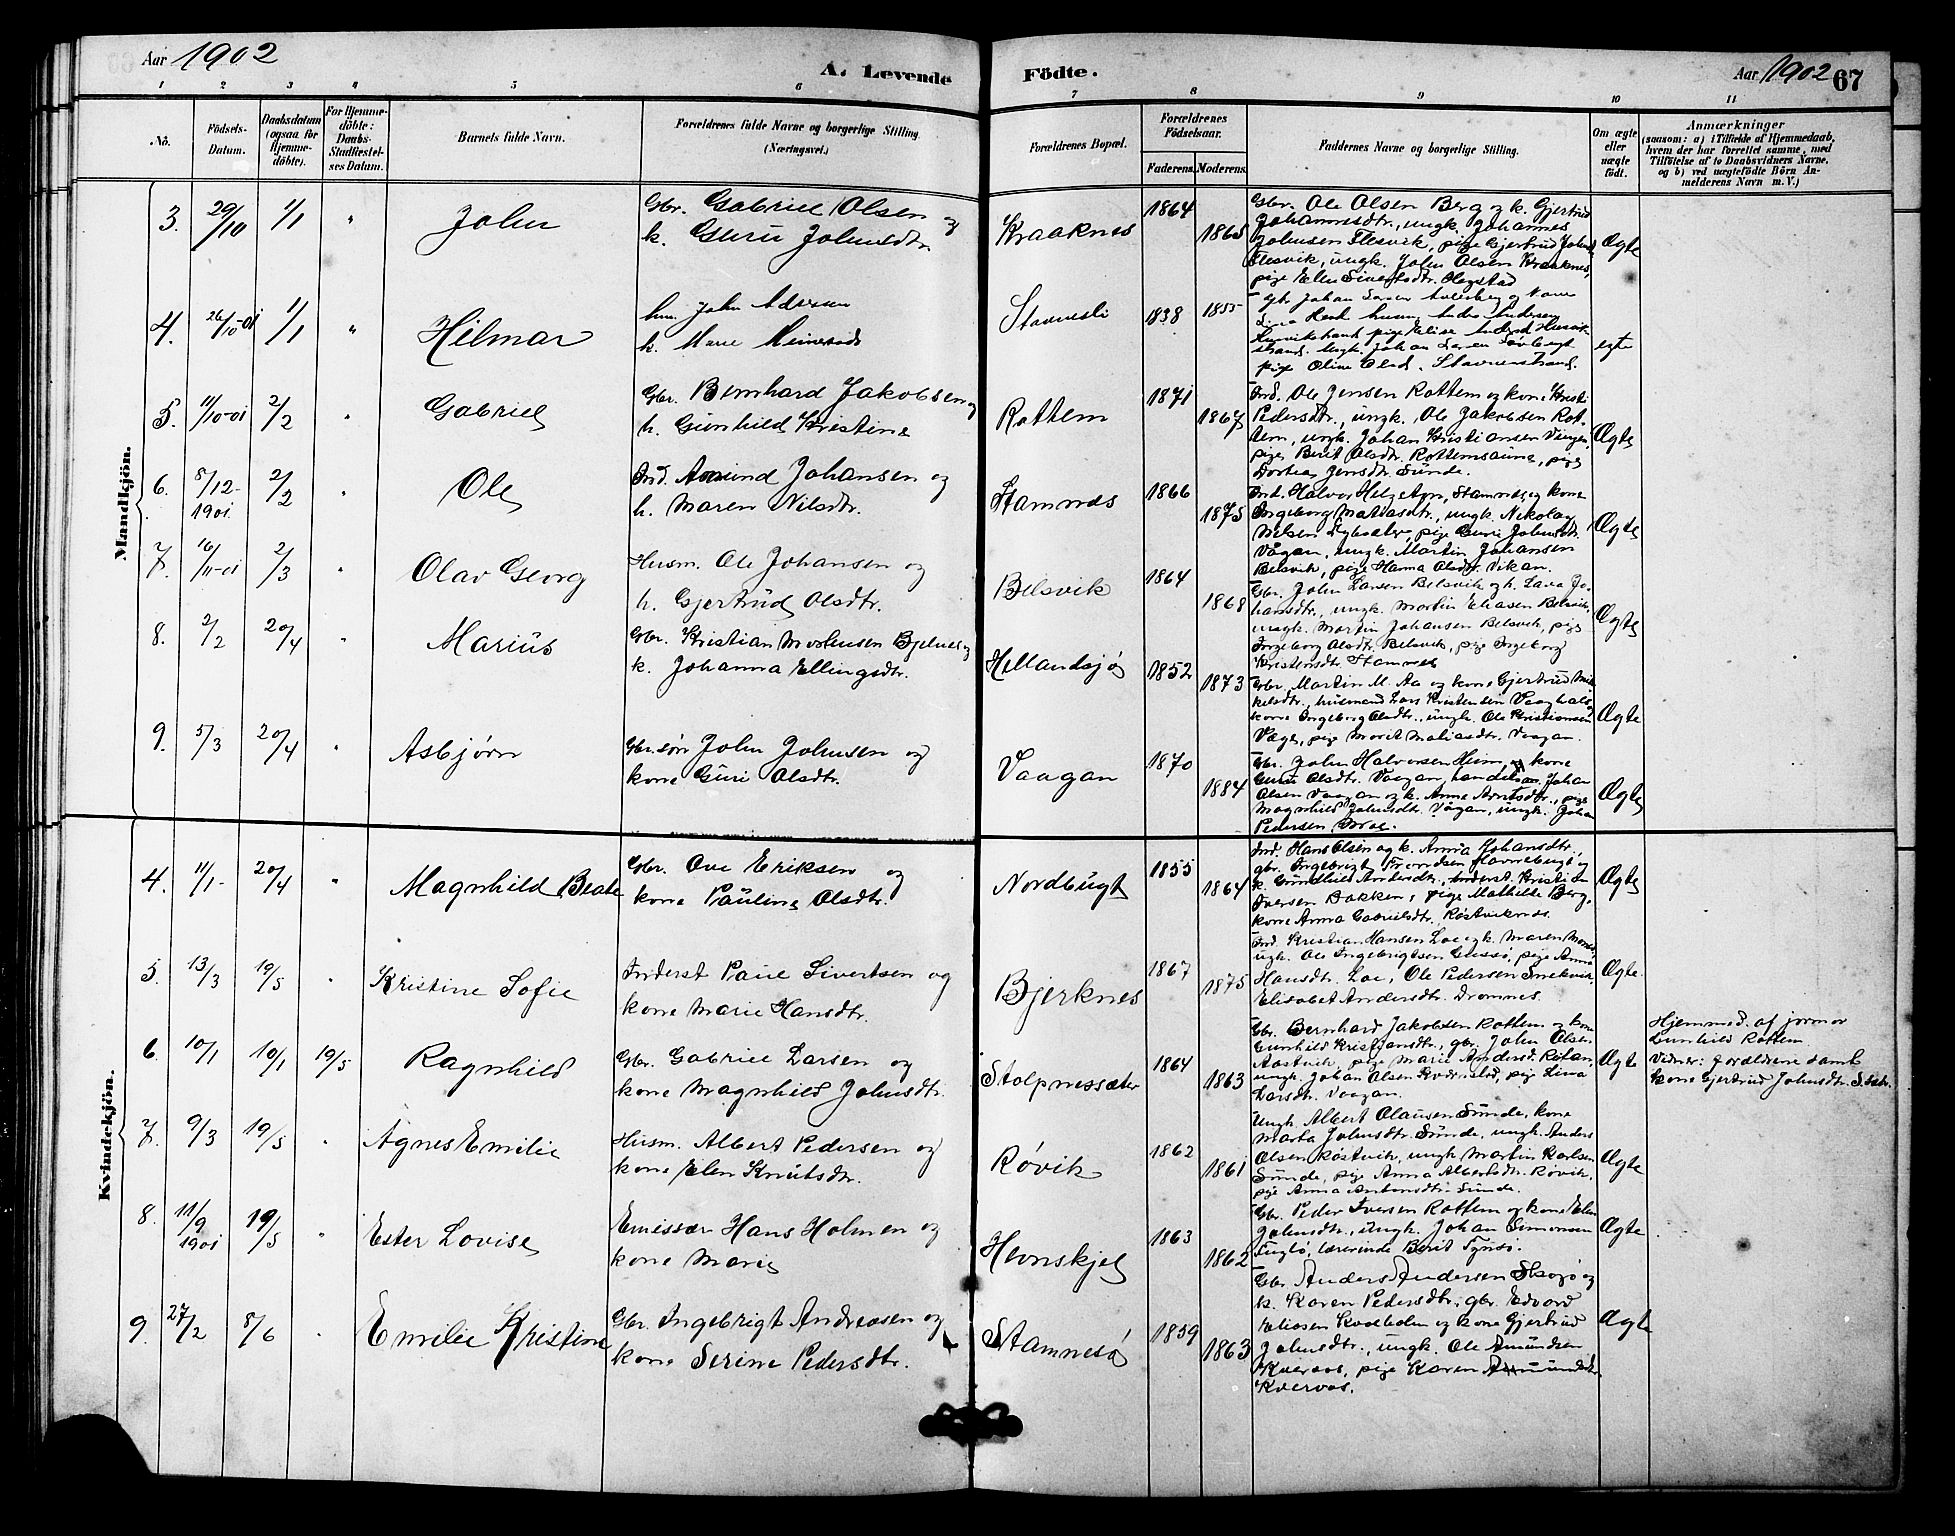 Aar 1902
A. Levende Födte.
Aar 1902 67
1 2 3 4 5 6 7 8 9 10 11
No.
Födsels-Datum.
Daabsdatum (ogsaa for Hjemmedöbte).
For Hjemmedöbte: Daabs-Stadfæstelses Datum.
Barnets fulde Navn.
Forældrenes fulde Navne og borgerlige Stilling.
(Næringsvei.)
Forældrenes Bopæl.
Forældrenes Födselsaar.
Faderens. Moderens.
Faddernes Navne og borgerlige Stilling.
Om ægte eller uægte födt.
Anmærkninger
(saasom: a) i Tilfælde af Hjemmedaab, hvem der har forrettet samme, med Tilföielse af to Daabsvidners Navne, og b) ved uægtefödte Börn Anmelderens Navn m. V.)
Mandkjön.
3. 29/10 1/1 " John
Gbr. Gabriel Olsen og
k. Guru Johnsdtr.
Kraaknes 1864 1865
Gbr. Ole Olsen Berg og k. Gjertrud
Johannesdtr., ungk. Johannes
Johnsen Flesvik, pige Gjertrud Johnsd.
Flesvik, ungk. John Olsen Kraaknes,
pige Elen Sivertsdtr. Hagstad
Ægte
4. 26/10-01 1/1 " Hilmar
hm. John
k. Marie
Stavnesli 1838 1855
Gb. Johan
ungk. Johan
pige Oline Olsd. Stavnesstrand.
egte
5. 11/10-01 2/2 " Gabriel
Gbr. Bernhard Jakobsen og
h. Gunhild Kristine
Rottem 1871 1867
Ind. Ole Jensen Rottem og kone Kristi
Pedersdtr., ungk. Ole Jakobsen Rot-
tem, ungk. Johan Kristiansen Vingen
pige Berit Olsdtr. Rottemsaune, pige
Dortea Jensdtr. Sunde.
Ægte
6. 8/12-1901 2/2 " Ole
Ind. Amund Johansen og
h. Maren Nilsdtr.
Stamnes 1866 1875
Ind. Halvor Helgesen, Stamnes og kone
Ingeborg Matiasdtr., ungk. Nikolay
Nilsen, pige Guri Johnsdtr.
Vågan, ungk. Martin Johansen
Belsvik, pige Hanna Olsdtr. Vikan.
Ægte
7. 16/11-01 2/3 " Olav Georg
Husm. Ole Johansen og
h. Gjertrud Olsdtr.
Belsvik 1864 1868
Gbr. John Larsen Belsvik og h. Lava Jo-
hansdtr., ungk. Martin Eliasen Belsvik,
ungk. Martin Johansen Belsvik, pige
Ingeborg Olsdtr. Belsvik, pige Ingeborg
Kristensdtr. Stamnes
Ægte
8. 2/2 20/4 " Marius
Gbr. Kristian Mortensen Bjelnes og
k. Johanna Ellingsdtr.
Hellandsjø 1852 1873
Gbr. Martin M. Aa og kone Gjertrud Mik-
kelsdtr., husmand Lars Kristensen Vaaghals
kone Ingeborg Olsdtr., ungk. Ole Kristiansen
pige Marit Matiasdtr. Vaagan.
Ægte
9. 5/3 20/4 " Asbjørn
Gbr.søn John Johnsen og
kone Guri Olsdtr.
Vaagan 1870 1884
Gbr. John Halvorsen Heim, og kone
Guri Olsdtr. Vaagan, handelsm. Johan
Olsen Vaagan og k. Anna Arntsdtr., pige
Magnhild Johnsdtr. Vågan, ungk. Johan
Pedersen Moe.
Ægte
Kvindekjön.
4. 11/1- 20/4 " Magnhild Beate
Gbr. Ove Eriksen og
kone Pauline Olsdtr.
Nordbugt 1855 1864
Ind. Hans Olsen og k. Anna Johansdtr.,
gbr. Ingebrigt Trondsen Havnebugt og
k. Gundhild Andersdtr., inderst Kristian
Iversen Bakken, pige Mathilde Berg,
kone Anna Gabrielsdtr. Røstviknes.
Ægte
5 13/3 19/5 " Kristine Sofie
Inderst Paul Sivertsen og
kone Marie Hansdtr.
Bjerknes 1867 1875
Ind. Kristian Hansen Loe og k. Maren Monsd.
ungk. Ole Ingebrigtsen, pige Anna
Hansdtr. Loe, Ole Pedersen Snekvik,
Elisabet Andersdtr. Dromnes.
Ægte.
6 10/1 10/1 19/5 Ragnhild
Gbr. Gabriel Larsen og
kone Magnhild Johnsdtr.
Stolpnessæter 1864 1863
Gbr. Bernhard Jakobsen Rottem og kone
Gunhild Kristiansdtr., gbr. John Olsen
Aastvik, pige Marie Andersd. Røtan,
ungk. Johan Olsen, pige Lina
Larsdtr. Vaagan.
Ægte
Hjemmed. af jormor
Gunhild Rottem.
Vidner: forældrene samt
kone Gjertrud Johnsdtr.
7. 9/3 19/5 " Agnes Emilie
Husm. Albert Pedersen og
kone Elen Knutsdtr.
Røvik 1862 1861
Ungk. Albert Olausen Sunde, kone
Marta Johnsdtr. Sunde, ungk. Anders
Olsen Røstvik, ungk. Martin Karlsen
Sunde, pige Anna Albertsdtr. Røvik,
pige Anna Antonsdtr. Sunde.
Ægte
8. 11/9 1901 19/5 " Ester Lovise
Emissær Hans Holmen og
kone Marie
Hevnskjel 1863 1862
Gbr. Peder Iversen Rottem og kone Elen
Johnsdtr., ungk. Johan Simonsen
Fuglø, lærerinde Berit Tynsø.
Ægte
9. 27/2 8/6 " Emilie Kristine
Gbr. Ingebrigt Andreasen og
kone Serine Pedersdtr.
Stamnesø 1859 1863
Gbr. Anders Andersen Skogø og
k. Karen Pedersdtr., gbr. Edvard
Eliasen og kone Gjertrud
Johnsdtr., ungk. Ole Amundsen
Kvervos, pige Karen Amundsdtr.
Kvervos.
Ægte